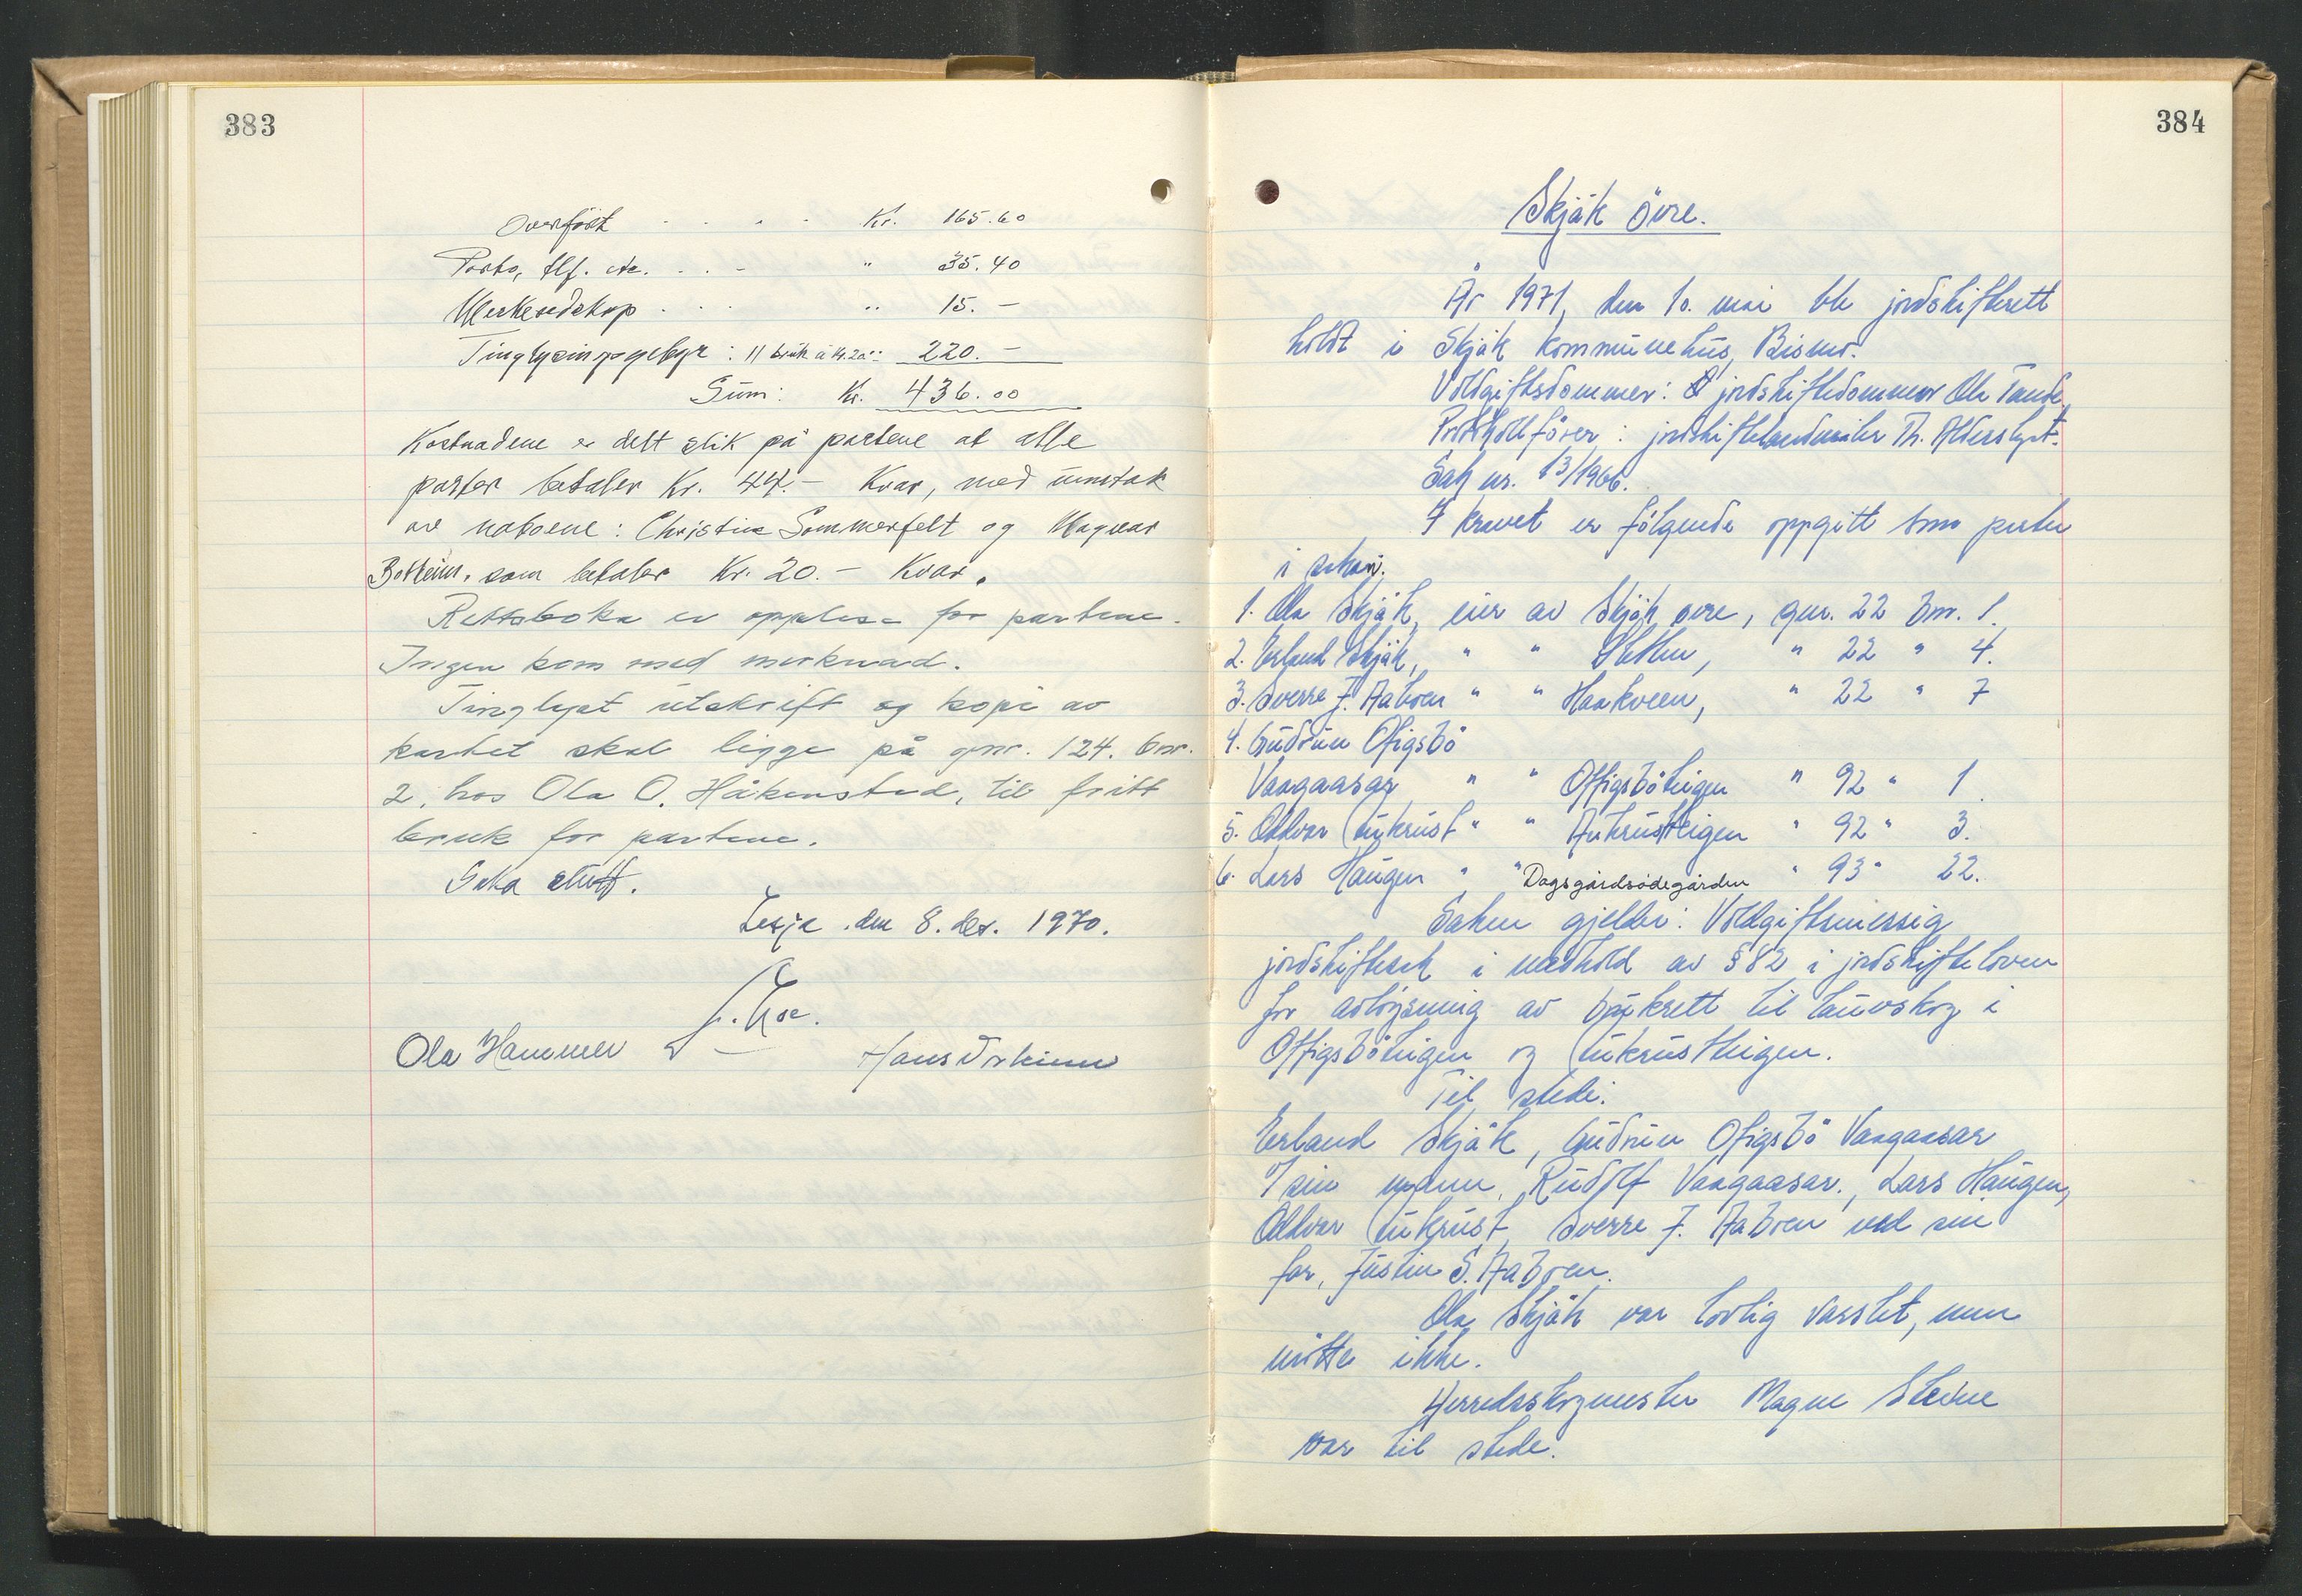 383
Overført . . . . Kr. 165.60
Porto, tlf. etc. . . . " 35.40
Merkeredskap . . . " 15.-
Tinglysingsgebyr : 11 bruk à kr. 20.- 220.-
Sum: Kr. 436.00
Kostnadene er delt slik på partene at alle
parter betaler Kr. 44.- Kvar, med unntak
av naboene : Christine Sommerfelt og Magnar
Bottheim, som betaler Kr. 20.- Kvar.
Rettsboka er opplese for partene.
Ingen kom med merknad.
Tinglyst utskrift og kopi av
kartet skal ligge på gnr. 124. bnr.
2, hos Ola O. Håkenstad, til fritt
bruk for partene.
Saka slutt.
Lesja den 8. des. 1970.
Ola Hammer
384
Skjåk övre.
År 1971, den 10. mai ble jordskifterett
holdt i Skjåk kommunehus, Bismo.
Voldgiftsdommer: jordskiftedommer Ole Tande.
Protokollförer : jordskiftelandmåler Th.
Sak nr. 13/1966.
I kravet er fölgende oppgitt som parter
i saken.
1. Ola Skjåk, eier av Skjåk övre, gnr. 22 bnr. 1.
2. Erland Skjåk, " " " 22 " 4.
3. Sverre J. Aaboen " " Haakveen, " 22 " 7
4. Gudrun Ofigsbö
Vaagaasar " " Offigsböteigen " 92 " 1.
5. Oddvar Aukrust " " Aukrustteigen " 92 " 3.
6. Lars Haugen " " Dagsgårdsödegården " 93 " 22.
Saken gjelder: Voldgiftsmessig
jordskiftesak i medhold av § 82 i jordskifteloven
for avlöysning av bruksrett til lauvskog i
Offigsböteigen og Aukrustteigen.
Til stede:
Erland Skjåk, Gudrun Ofigsbö Vaagaasar
v/ sin mann, Rudolf Vaagaasar., Lars Haugen,
Oddvar Aukrust, Sverre J. Aaboen ved sin
far, Justin S. Aaboen.
Ola Skjåk var lovlig varslet, men
mötte ikke.
Herredsskogmester Magne Steine
var til stede.